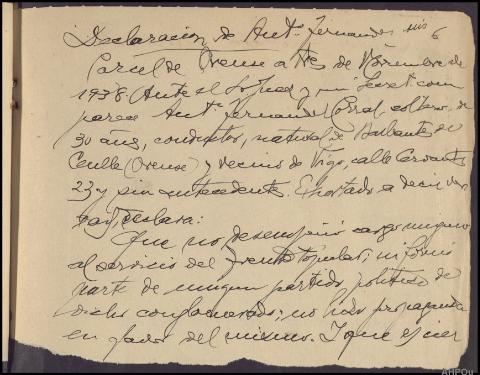 Declaracion de Antº Fernandez seis 6
Carcel de Orense a tres de Noviembre de
1938. Ante el Sr Juez y mi Secret. com
parece Antº Fernandez Corral soltero, de
30 años, conductor, natural de Barbantes en
Cenlle (Orense) y vecino de Vigo, calle Cervantes
23 y sin antecedentes. Exhortado a decir ver
dad, declara:
Que no desempeño cargo ninguno
al servicio del Frente popular; ni formo
parte de ningun partido politico de
dicho conglomerado; no hizo propaganda
en favor del mismo. Y que es cier
AHPOu